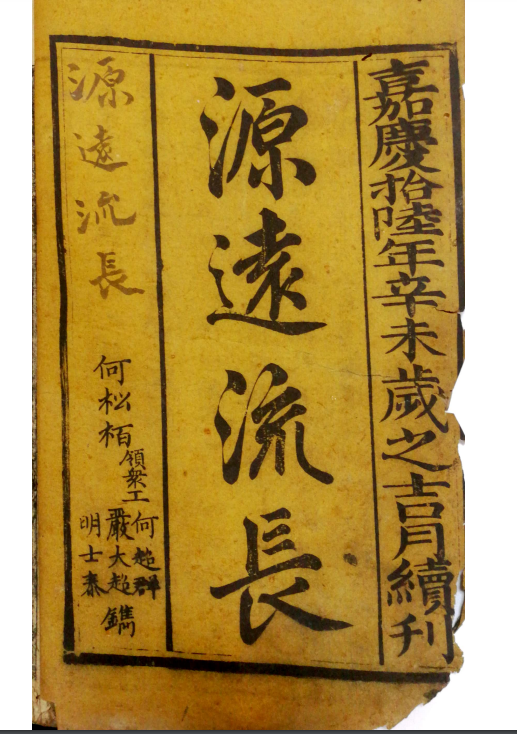 嘉慶拾陸年辛未歲之吉月續刊
源遠流長
源遠流長
何松栢領衆工
何超群
嚴大超鐫
明士泰